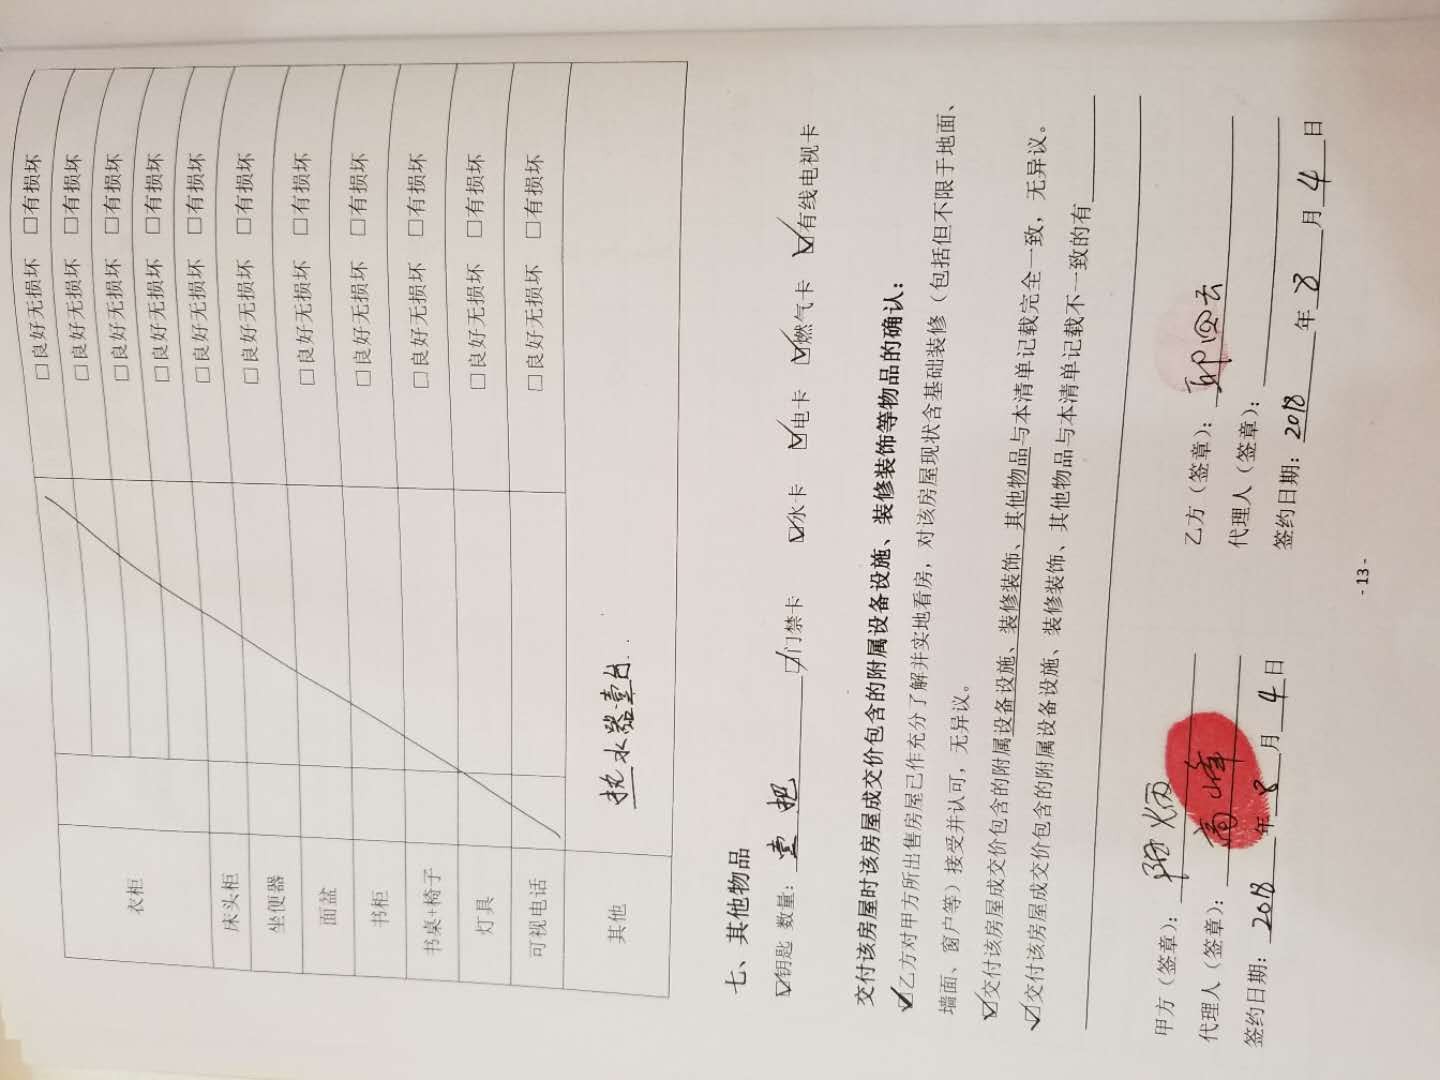 衣柜 □良好无损坏 □有损坏
□良好无损坏 □有损坏
□良好无损坏 □有损坏
□良好无损坏 □有损坏
床头柜 □良好无损坏 □有损坏
坐便器 □良好无损坏 □有损坏
面盆 □良好无损坏 □有损坏
书柜 □良好无损坏 □有损坏
书桌+椅子 □良好无损坏 □有损坏
灯具 □良好无损坏 □有损坏
可视电话 □良好无损坏 □有损坏
其他 热水器壹台.
七、其他物品
☑钥匙 数量：壹把 ☑门禁卡 ☑水卡 ☑电卡 ☑燃气卡 ☑有线电视卡
交付该房屋时该房屋成交价包含的附属设备设施、装修装饰等物品的确认：
☑乙方对甲方所出售房屋已作充分了解并实地看房，对该房屋现状含基础装修（包括但不限于地面、
墙面、窗户等）接受并认可，无异议。
☑交付该房屋成交价包含的附属设备设施、装修装饰、其他物品与本清单记载完全一致，无异议。
☑交付该房屋成交价包含的附属设备设施、装修装饰、其他物品与本清单记载不一致的有
甲方（签章）： 乙方（签章）：
代理人（签章）： 代理人（签章）：
签约日期：2018年8月4日 签约日期：2018年8月4日
- 13 -